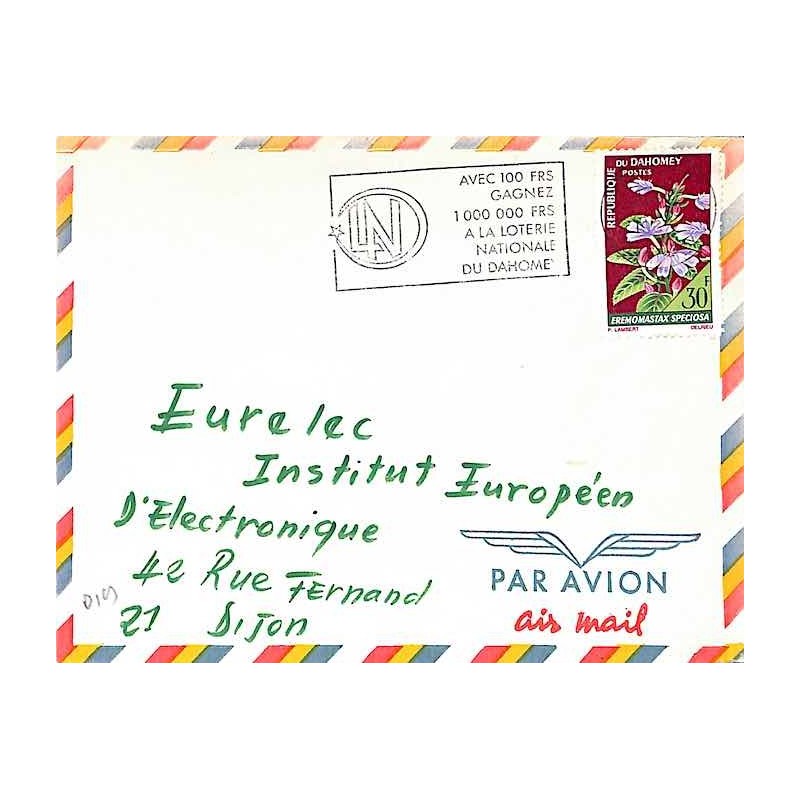 AVEC 100 FRS
GAGNEZ
1 000 000 FRS
A LA LOTERIE
NATIONALE
DU DAHOME
LAN
REPUBLIQUE DU DAHOMEY
POSTES
30F
EREMOMASTAX SPECIOSA
P. LAMBERT DELRIEU
Eurelec
Institut Européen
D'Electronique
42 Rue Fernand
21 Dijon
PAR AVION
air mail